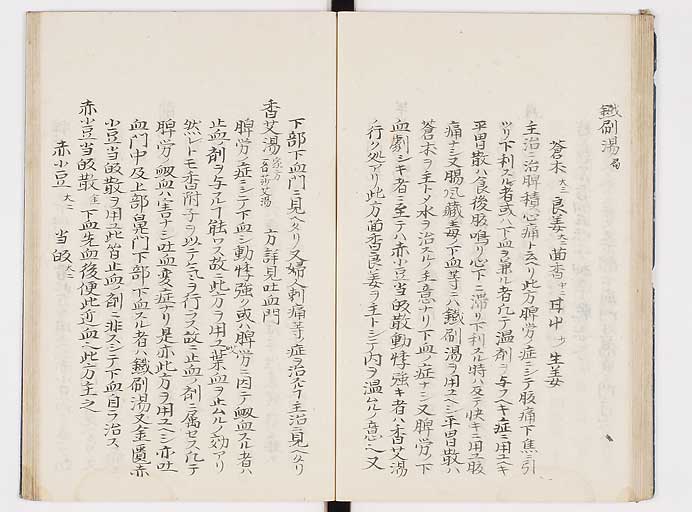 鐵刷湯 局
蒼朮 大 良姜 大 茴香 中 甘中 小 生姜
主治ニ治脾積心痛トミヘリ此方脾労ノ症ニシテ腹痛下焦ニ引
ツリ下利スル者或ハ下血ヲ兼ル者凡テ温剤ヲ与フヘキ症ニ用ユヘキ
平胃散ハ食後腹鳴リ心下ニ滞リ下利スル時ハ反テ快キニ用ユ腹
痛ナシ又腸風臓毒ノ下血等ニハ鐵刷湯ヲ用ユヘシ平胃散ハ
蒼朮ヲ主トメ水ヲ治スルノ主意ナリ下血ノ症ナシ又脾労ノ下
血劇シキ者ニ至テハ赤小豆当皈散動悸強キ者ハ香艾湯ヘ
行ク処アリ此方茴香良姜ヲ主トシテ内ヲ温ムルノ意ヘ又
下部下血門ニ見ヘタリ又婦人刺痛等ノ症ヲ治スルフ主治ニ見ヘタリ
香艾湯 家方 一名莎艾湯 方詳見吐血門
脾労ノ症ニシテ下血シ動悸強ク或ハ脾労ニ因テ衂血スル者ハ
止血ノ剤ヲ与ルフ能ワス故ニ此方ヲ用ユ葉血ヲ止ムルノ効アリ
然レトモ香附子ヲ以テ気ヲ行ラス故ニ止血ノ剤ニ属セス凡テ
脾労ノ衂血ハ害ナシ吐血ノ変症ナリ是亦此方ヲ用ユヘシ亦吐
血門中及上部鼻門下部下血スル者ハ鐵刷湯又金匱赤
小豆当皈散ヲ用ユ此皆止血ノ剤ニ非スシテ下血自ラ治ス
赤小豆当皈散 金 下血先血後便此近血ヘ此方主之
赤小豆 大 当皈 大